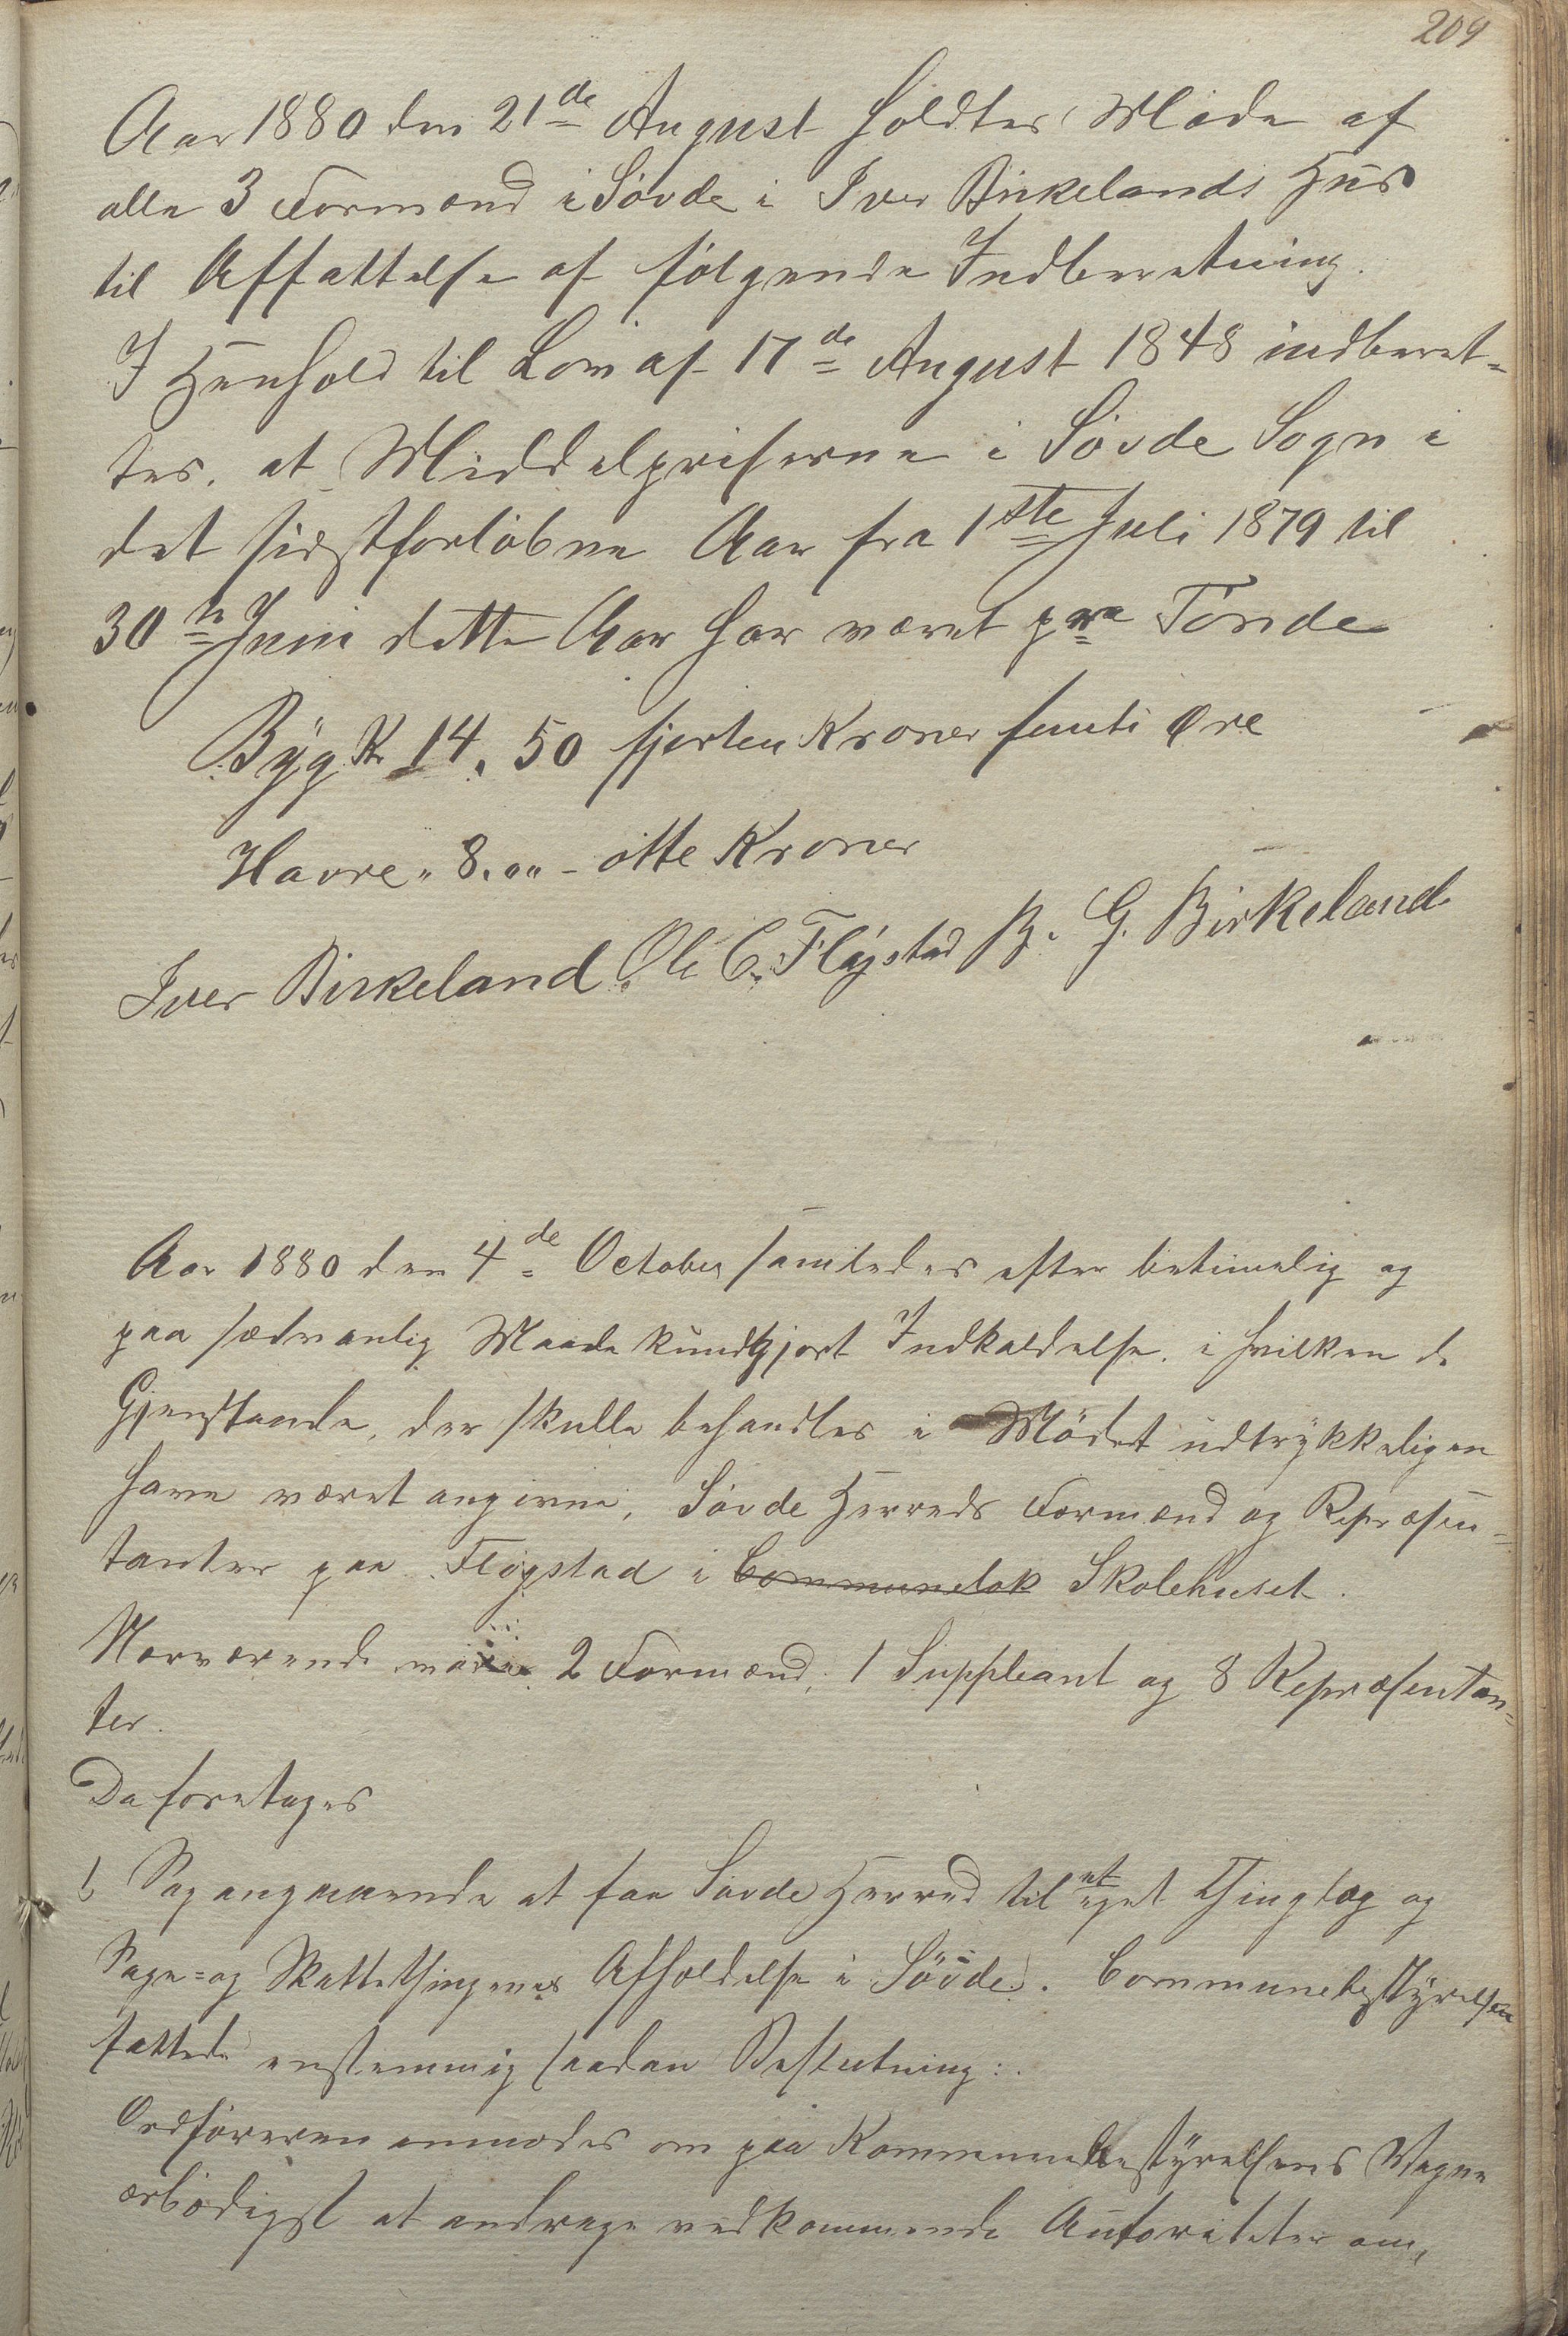 209
Aar 1880 den 21de August holdtes Møde af
alle 3 Formænd i Søvde i Iver Birkelands Hus
til Affattelse af følgende Indberetning.
I Henhold til Lov af 17de August 1848 indberet-
tes, at Middelpriserne i Søvde Sogn i
det sidstforløbne Aar fra 1ste Juli 1879 til
30te Juni dette Aar har været pre Tønde
Byg Kr 14,50 fjorten Kroner femti Øre
Havre „ 8.00 - otte Kroner
Iver Birkeland. Ole C. Fløjstad B. G. Birkeland
Aar 1880 den 4de October samledes efter betimelig og
paa sædvanlig Maade kundgjort Indkaldelse, i hvilken de
Gjenstande, der skulle behandles i Mødet udtrykkeligen
have været angivne, Søvde Herreds Formænd og Repræsen-
tanter paa Fløgstad i Communelok Skolehuset.
Nærværende vare 2 Formænd, 1 Suppleant og 8 Repræsentan-
ter.
Da foretages
1, Sag angaaende at faa Søvde Herred til et eget Thinglag og
Sage- og Skattethingenes Afholdelse i Søvde. Communebestyrelsen
fattede enstemmig saadan Beslutning:
Ordføreren anmodes om paa Kommunebestyrelsens Vegne
ærbødigst at andrage vedkommende Autoriteter om,